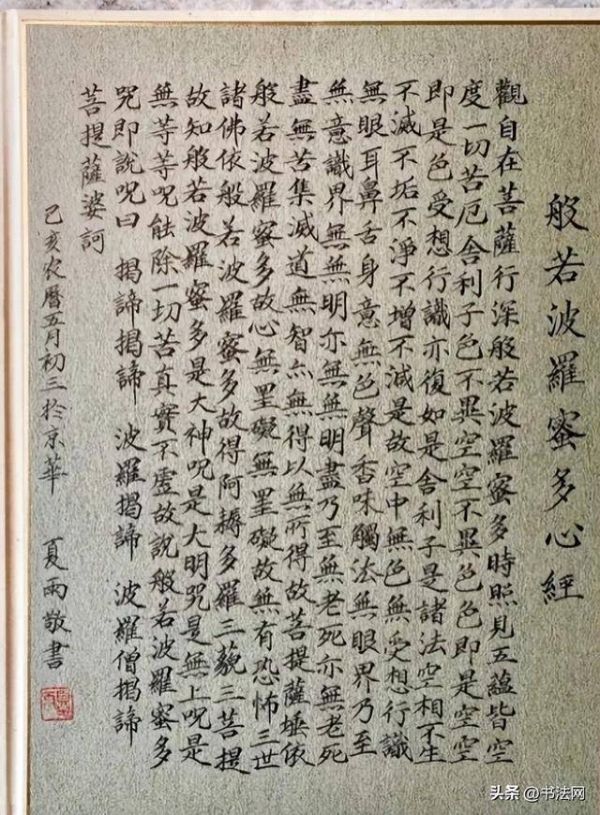 般若波羅蜜多心經
觀自在菩薩行深般若波羅蜜多時照見五蘊皆空
度一切苦厄舍利子色不異空空不異色色即是空空
即是色受想行識亦復如是舍利子是諸法空相不生
不滅不垢不淨不增不減是故空中無色無受想行識
無眼耳鼻舌身意無色聲香味觸法無眼界乃至
無意識界無無明亦無無明盡乃至無老死亦無老死
盡無苦集滅道無智亦無得以無所得故菩提薩埵依
般若波羅蜜多故心無罣礙無罣礙故無有恐怖三世
諸佛依般若波羅蜜多故得阿耨多羅三藐三菩提
故知般若波羅蜜多是大神咒是大明咒是無上咒是
無等等咒能除一切苦真實不虛故說般若波羅蜜多
咒即說咒曰 揭諦揭諦 波羅揭諦 波羅僧揭諦
菩提薩婆訶
己亥农曆五月初三於京華 夏雨敬書
头条 @书法网